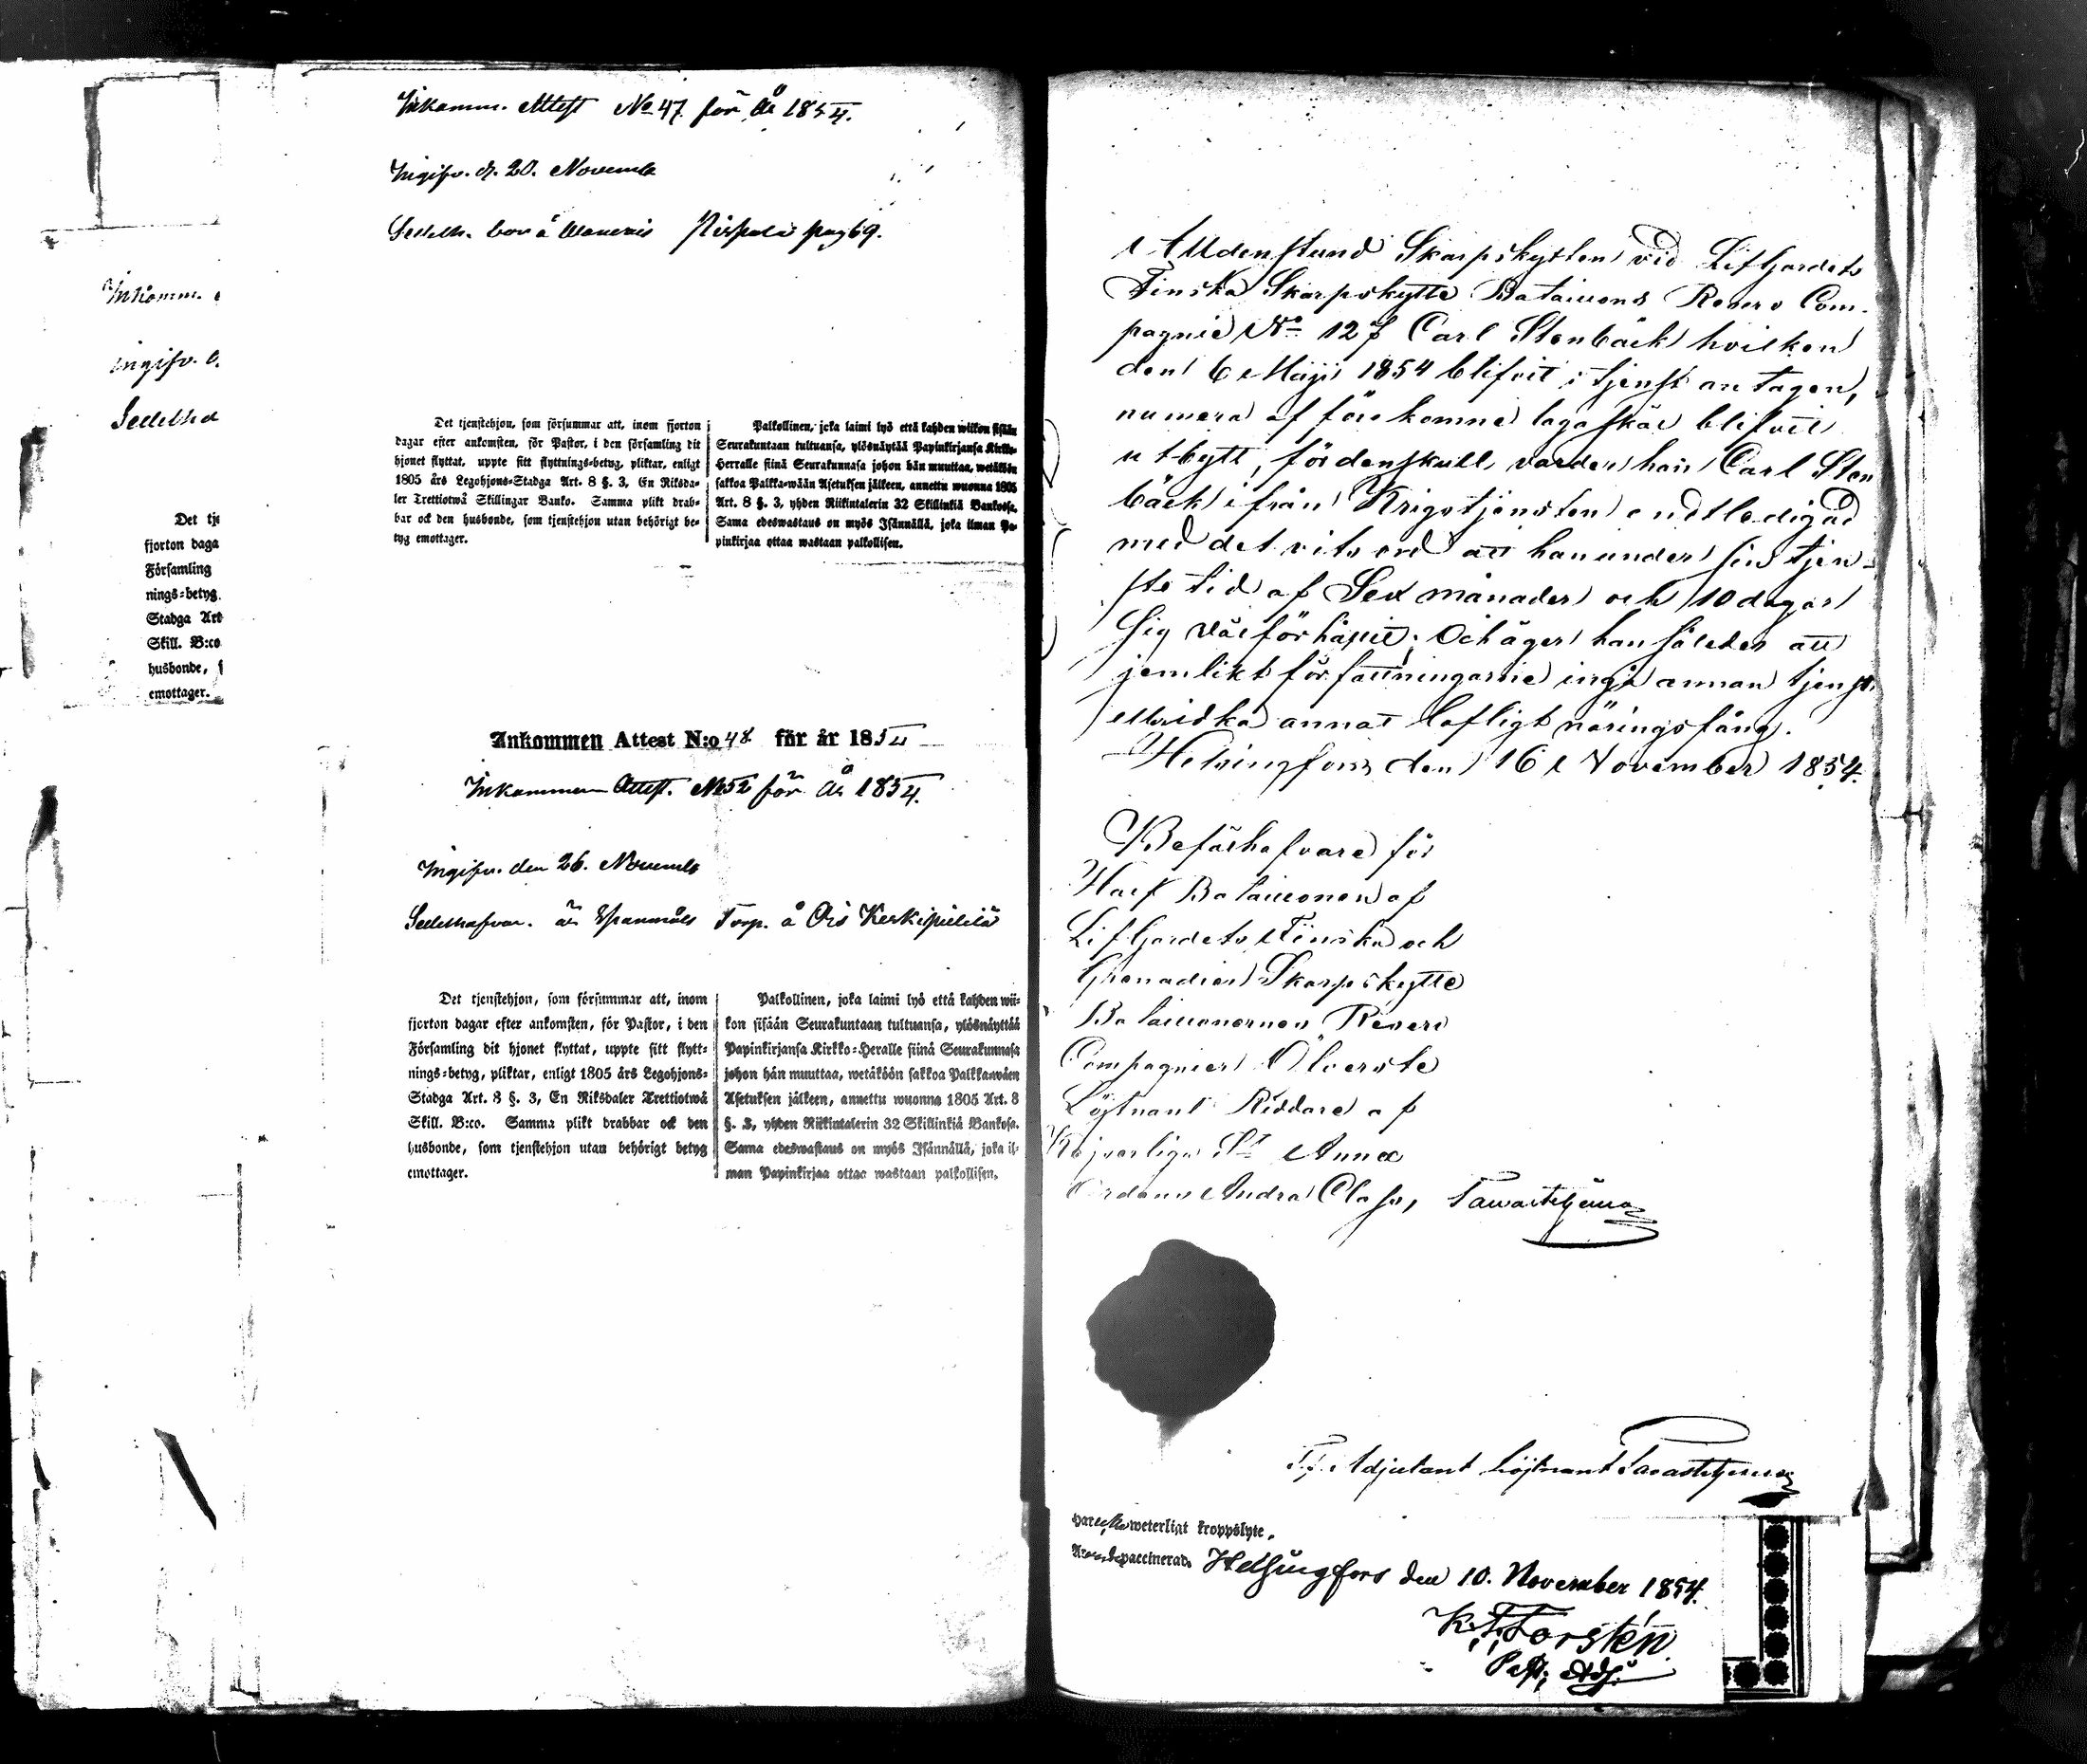 Inkomm.
ingifv.
Sedelha
Det tj
fjorton daga
Församling
nings-betyg.
Stadga Art
Skill. B:co
husbonde, f
emottager.
Inkomm. Attest No 47. för år 1854.
Ingifv. d. 20. Novemb
Sedelh. bor å Pispala pag 69.
Det tjenstehjon, som försummar att, inom fjorton
dagar efter ankomsten, för Pastor, i den församling dit
hjonet flyttat, uppte sitt flyttnings-betyg, pliktar, enligt
1805 års Legohjons-Stadga Art. 8 §. 3, En Riksda-
ler Trettiotwå Skillingar Banko. Samma plikt drab-
bar ock den husbonde, som tjenstehjon utan behörigt be-
tyg emottager.
Palkollinen, joka laimi lyö että kahden wiikon sisään
Seurakuntaan tultuansa, ylösnäyttää Papinkirjansa Kirkko-
Herralle siinä Seurakunnasa johon hän muuttaa, wetäköön
sakkoa Palkka-wään Asetuksen jälkeen, annettu wuonna 1805
Art. 8 §. 3, yhden Riikintalerin 32 Skillinkiä Bankossa.
Sama edeswastaus on myös Isännällä, joka ilman Pa-
pinkirjaa ottaa wastaan palkollisen.
Ankommen Attest N:o 48 för år 1854
Inkommen Attest. No 52 för år 1854.
Ingifv. den 26. Novemb
Sedelhafvar. är Spanmåls Torp. å Ois Keskipiiliä
Det tjenstehjon, som försummar att, inom
fjorton dagar efter ankomsten, för Pastor, i den
Församling dit hjonet flyttat, uppte sitt flytt-
nings-betyg, pliktar, enligt 1805 års Legohjons-
Stadga Art. 8 §. 3, En Riksdaler Trettiotwå
Skill. B:co. Samma plikt drabbar ock den
husbonde, som tjenstehjon utan behörigt betyg
emottager.
Palkollinen, joka laimi lyö että kahden wii-
kon sisään Seurakuntaan tultuansa, ylösnäyttää
Papinkirjansa Kirkko-Heralle siinä Seurakunnasa
johon hän muuttaa, wetäköön sakkoa Palkkawäen
Asetuksen jälkeen, annettu wuonna 1805 Art. 8
§. 3, yhden Riikintalerin 32 Skillinkiä Bankosa.
Sama edeswastaus on myös Isännällä, joka il-
man Papinkirjaa ottaa wastaan palkollisen.
Alldenstund Skarpskytten vid Lifgardets
Finska Skarpskytte Bataillons Reserv Com-
pagnie No 127 Carl Stenbäck hvilken
den 6 Maji 1854 blifvit i tjenst antagen,
numera af förekomne laga skäl blifvit
utbytt, fördenskull varder han Carl Sten
bäck ifrån Krigstjensten endtledigad
med det vitsord att han under sin tjen-
ste tid af Sex månader och 10 dagar
sig väl förhållit; Och äger han således att
jemlikt författningarne ingå annan tjenst
idka annat lofligt näringsfång.
Helsingfors den 16 November 1854.
Befälhafvare för
Half Bataillonen af
Lifgardets Finska och
Grenadier Skarpskytte
Bataillonernes Reserv
Compagnier Öfverste
Löjtnant Riddare af
Kejserliga St Annæ
Ordens Andra Class, Tawaststjerna
Tf. Adjutant Löjtnant Tavaststjerna
Har weterligt kroppslyte.
vaccinerad. Helsingfors den 10. November 1854.
K. F. Forstén
Past. Adj.